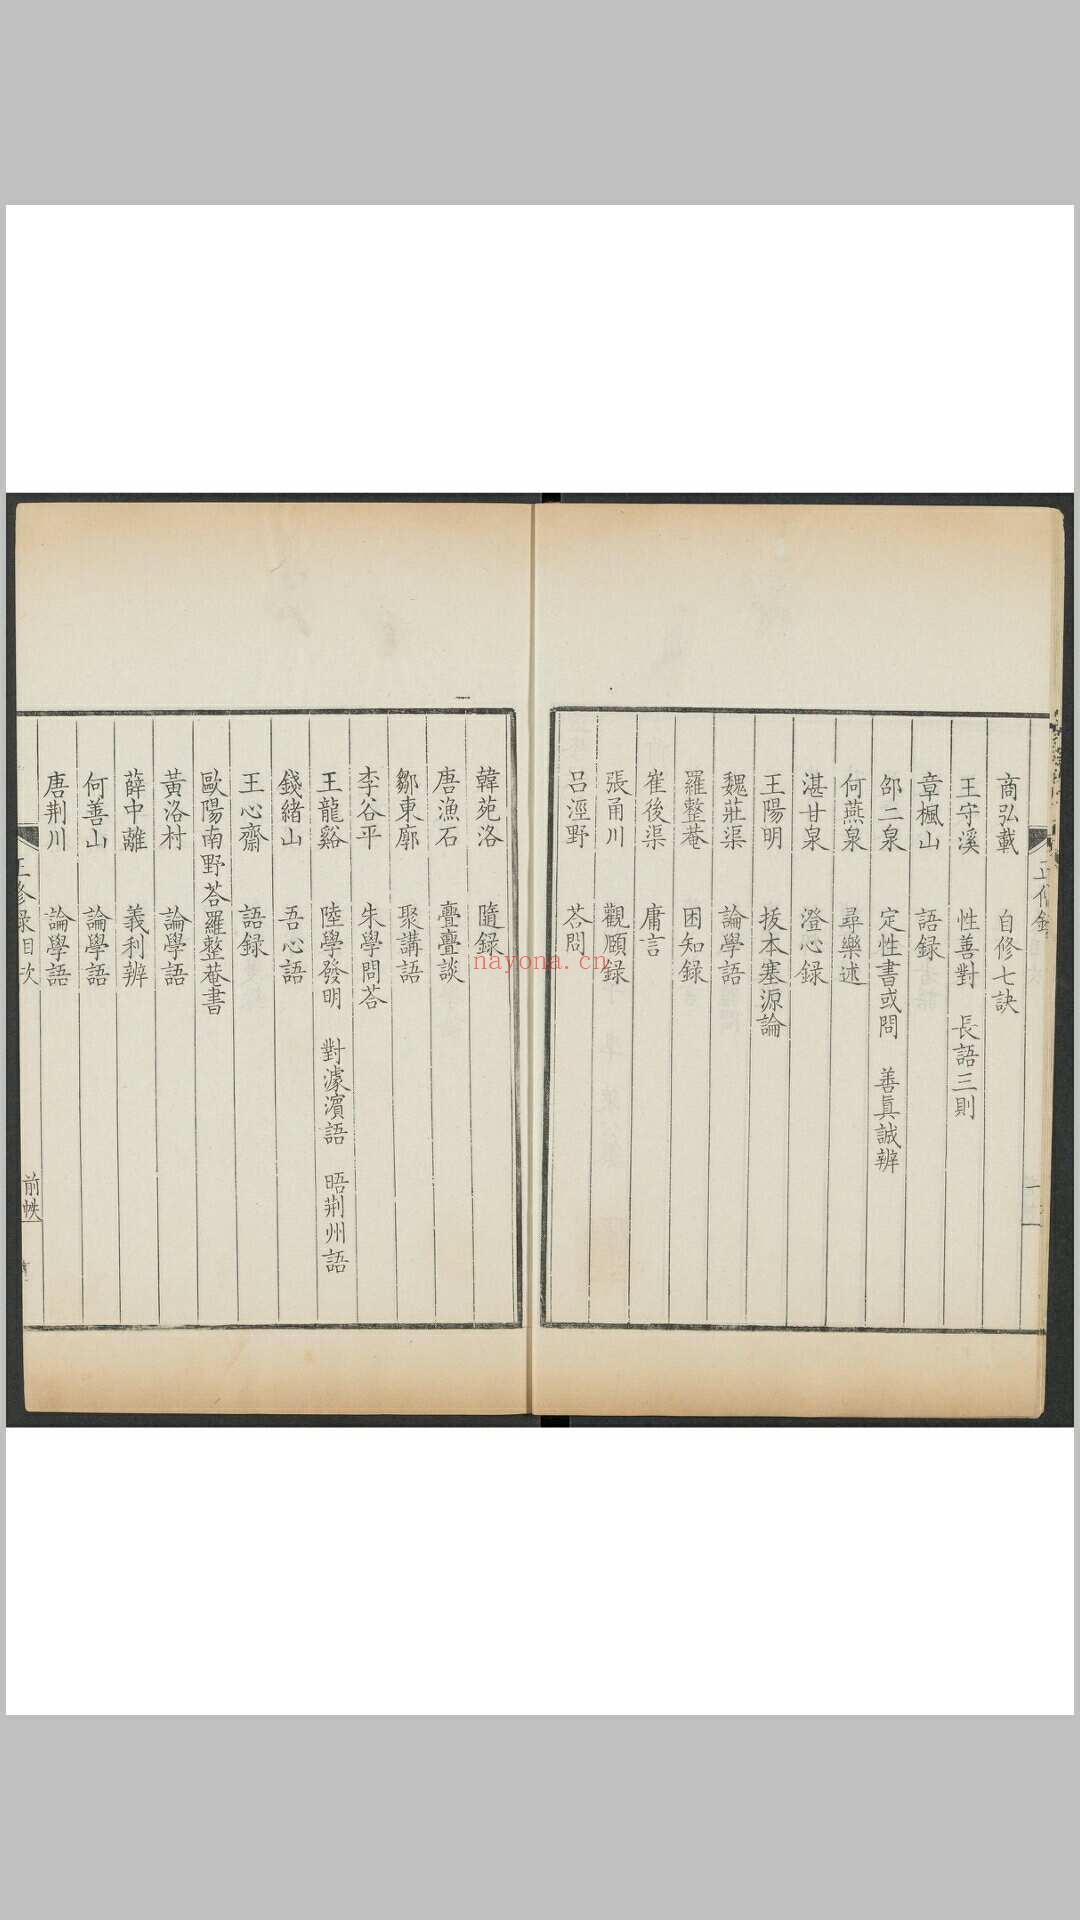 商弘載　自修七訣
王守溪　性善對　長語三則
章楓山　語録
邵二泉　定性書或問　善真誠辨
何燕泉　尋樂述
湛甘泉　澄心録
王陽明　拔本塞源論
魏莊渠　論學語
羅整菴　困知録
崔後渠　庸言
張甬川　觀頤録
呂涇野　荅問
韓苑洛　隨録
唐漁石　亹亹談
鄒東廓　聚講語
李谷平　朱學問荅
王龍谿　陸學發明　對濠濱語　晤荆州語
錢緒山　吾心語
王心齋　語録
歐陽南野荅羅整菴書
黃洛村　論學語
薛中離　義利辨
何善山　論學語
唐荆川　論學語
正修録目次　前帙
nayona.cn